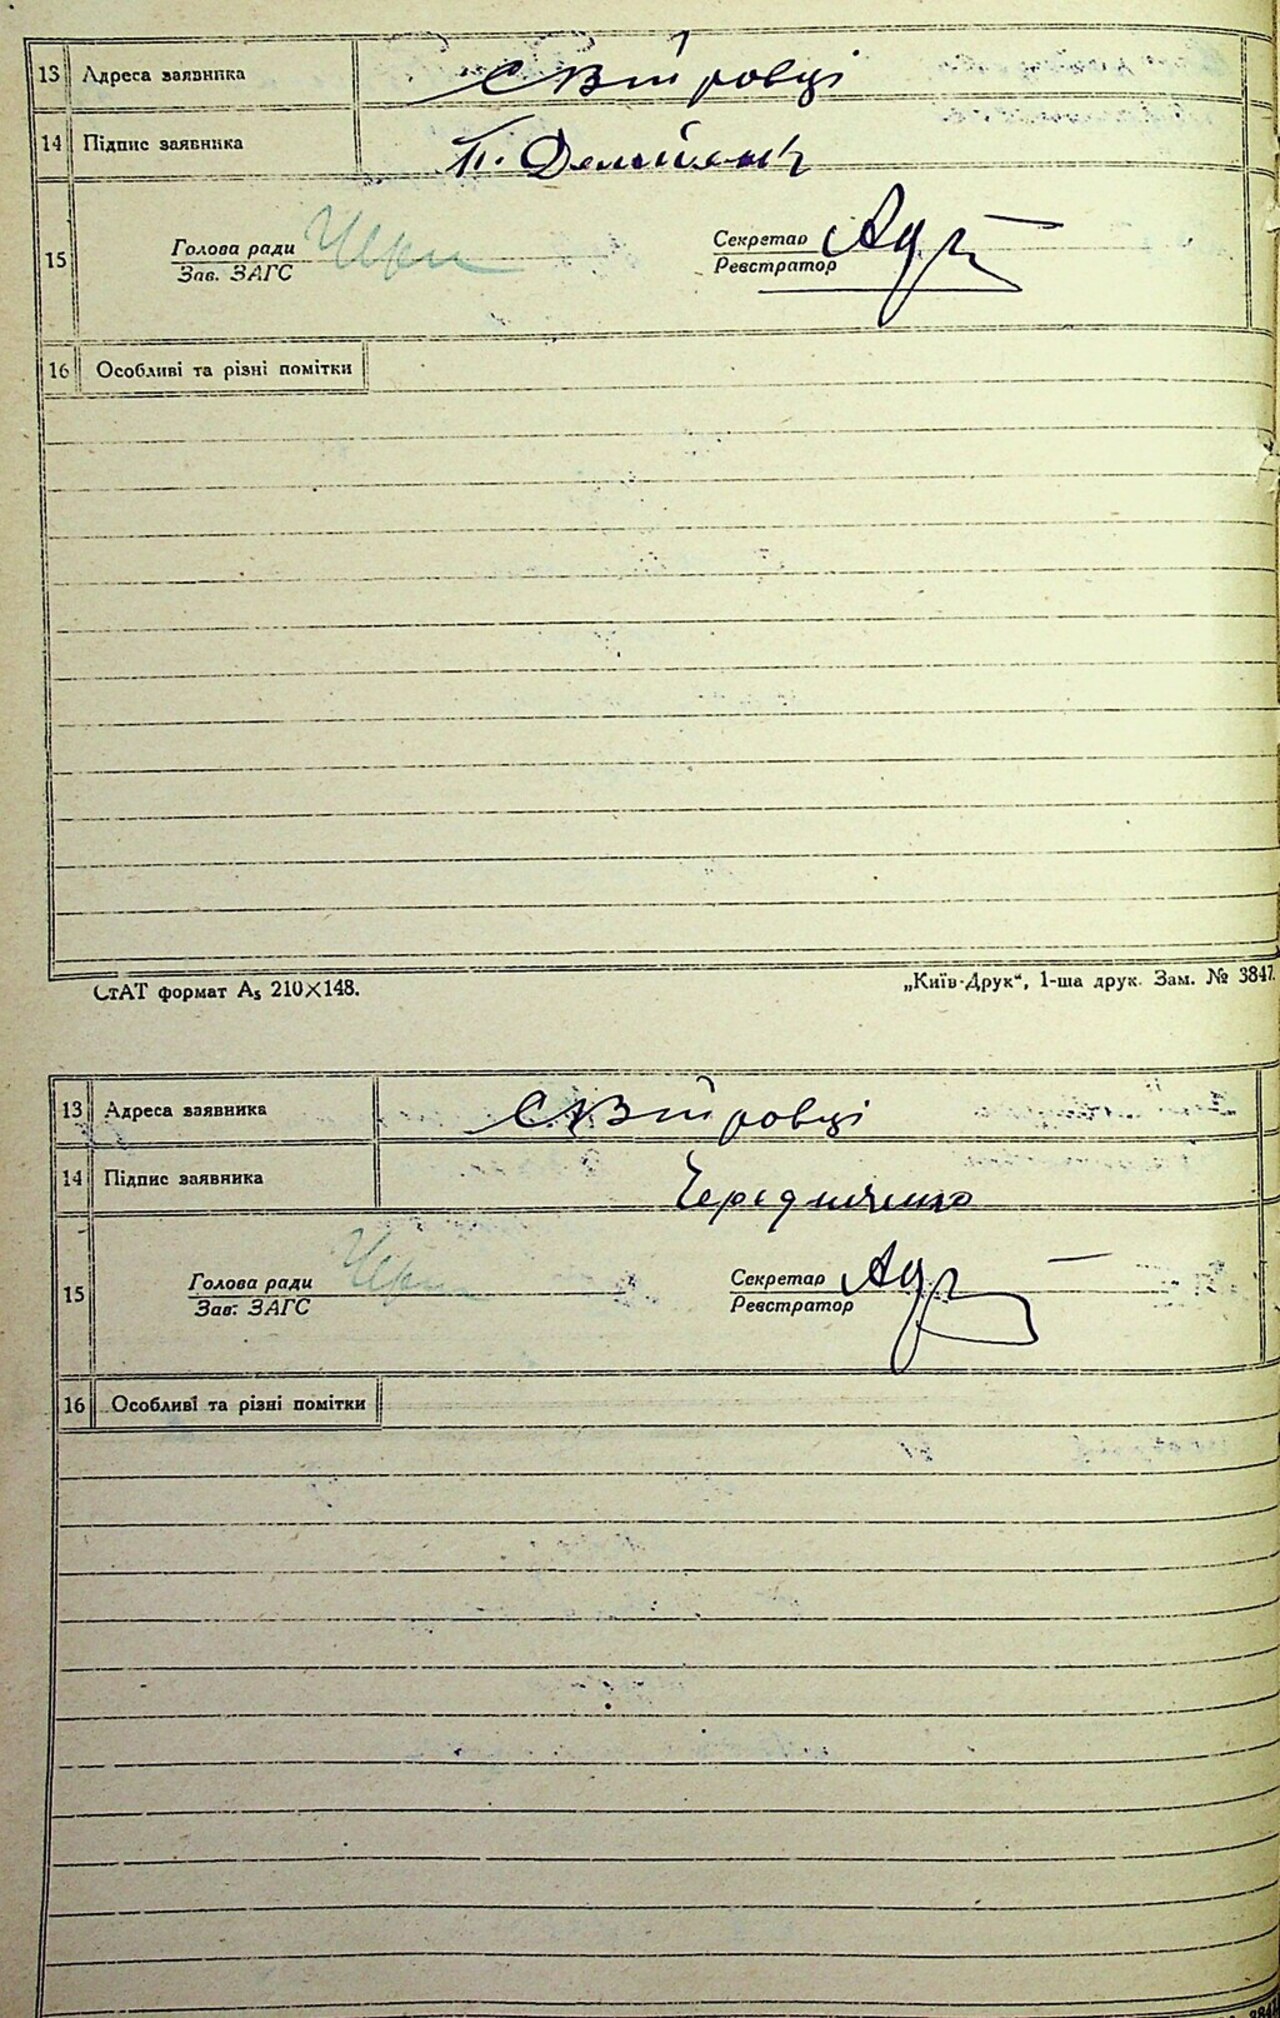 13 Адреса заявника с Вітровці
14 Підпис заявника П.
15 Голова ради Чери Секретар
Зав. ЗАГС Реєстратор
16 Особливі та різні помітки
СтАТ формат А₅ 210×148. „Київ-Друк“, 1-ша друк. Зам. № 3847.
13 Адреса заявника с Вітровці
14 Підпис заявника Чередниченко
15 Голова ради Чери Секретар
Зав. ЗАГС Реєстратор
16 Особливі та різні помітки